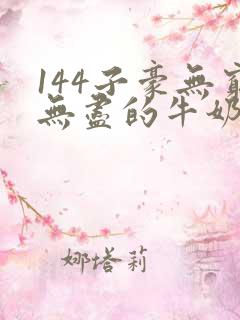 144子豪無窮
無盡的牛奶
娜塔莉